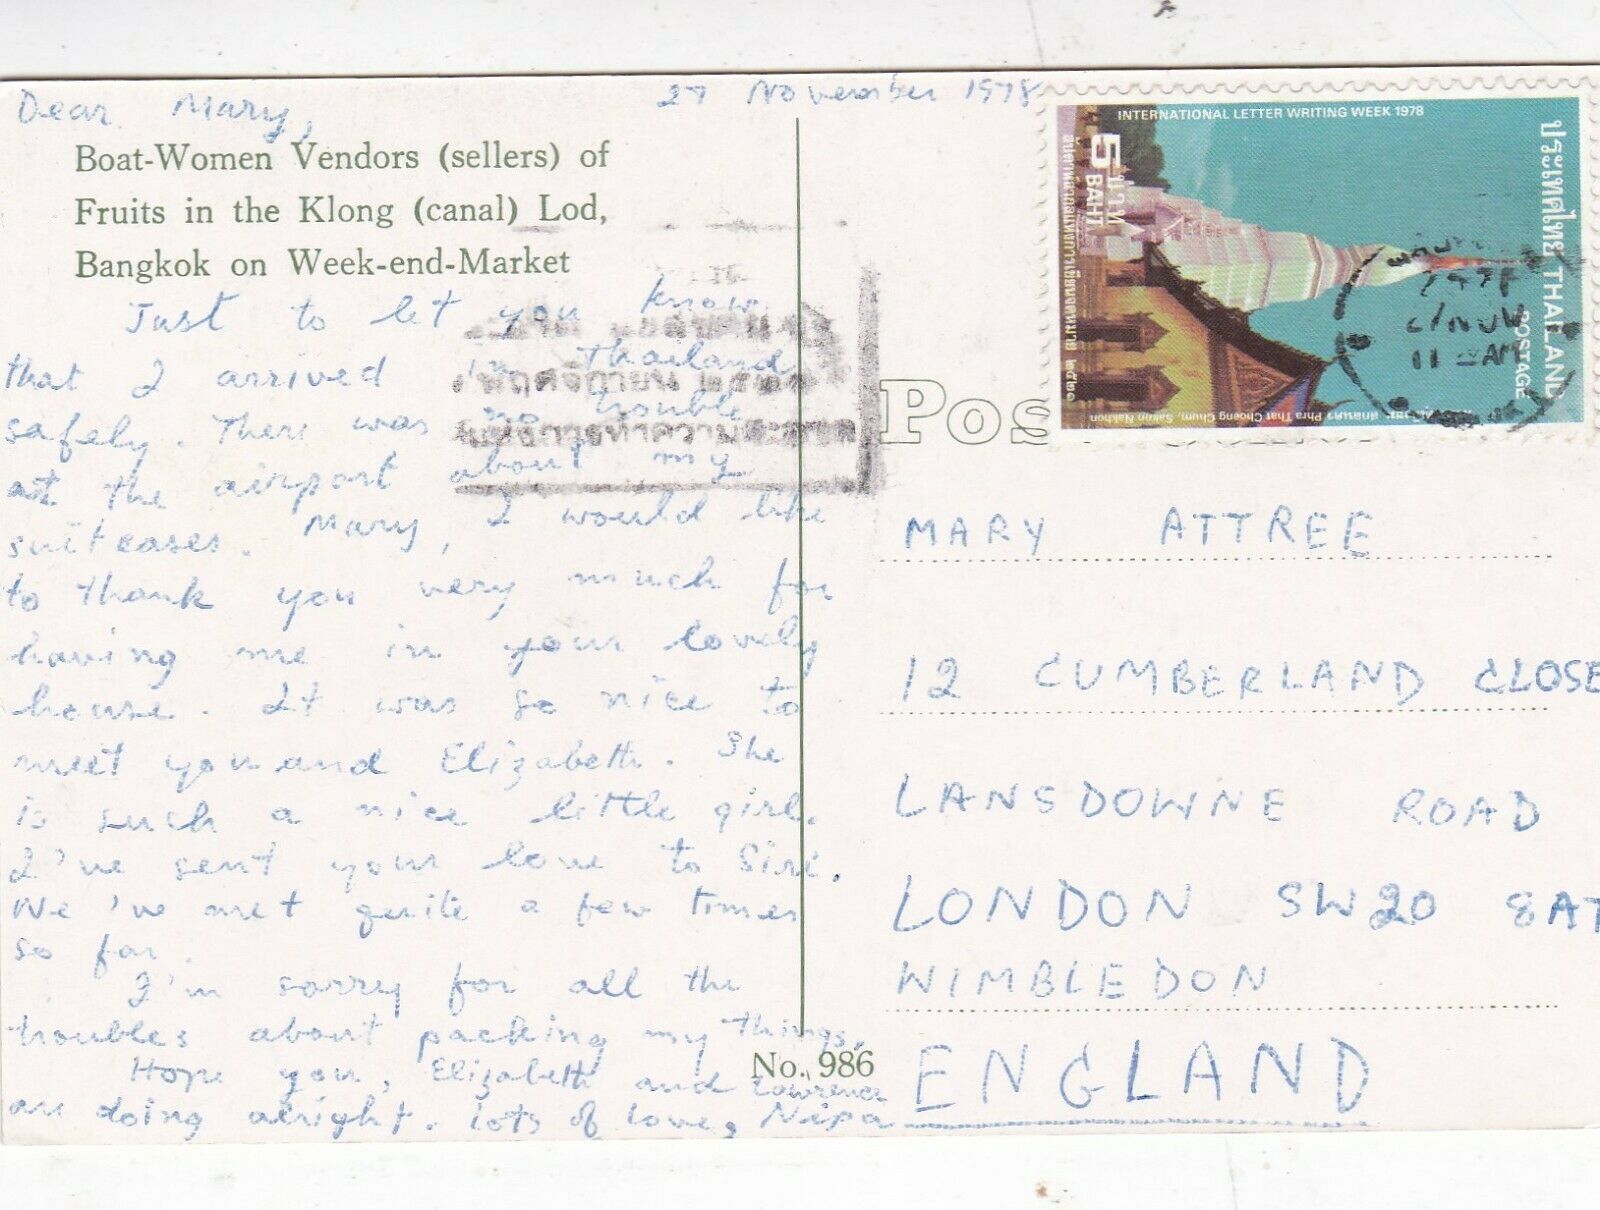 Dear Mary,
27 November 1978
Boat-Women Vendors (sellers) of
Fruits in the Klong (canal) Lod,
Bangkok on Week-end-Market
Just to let you know
that I arrived in Thailand
safely. There was no trouble
at the airport about my
suitcases. Mary, I would like
to thank you very much for
having me in your lovely
house. It was so nice to
meet you and Elizabeth. She
is such a nice little girl.
I've sent your love to Siri.
We've met quite a few times
so far.
I'm sorry for all the
troubles about packing my things.
Hope you, Elizabeth and Lawrence
are doing alright. Lots of love, Nipa
No. 986
INTERNATIONAL LETTER WRITING WEEK 1978
5 บาท
BAHT
สัปดาห์สากลแห่งการเขียนจดหมาย ๒๕๒๑
ประเทศไทย THAILAND
POSTAGE
Phra That Choeng Chum, Sakon Nakhon
พฤศจิกายน
แห่งการทำความสะอาด
1978
11 AM
Pos
MARY ATTREE
12 CUMBERLAND CLOSE
LANSDOWNE ROAD
LONDON SW20 8AT
WIMBLEDON
ENGLAND